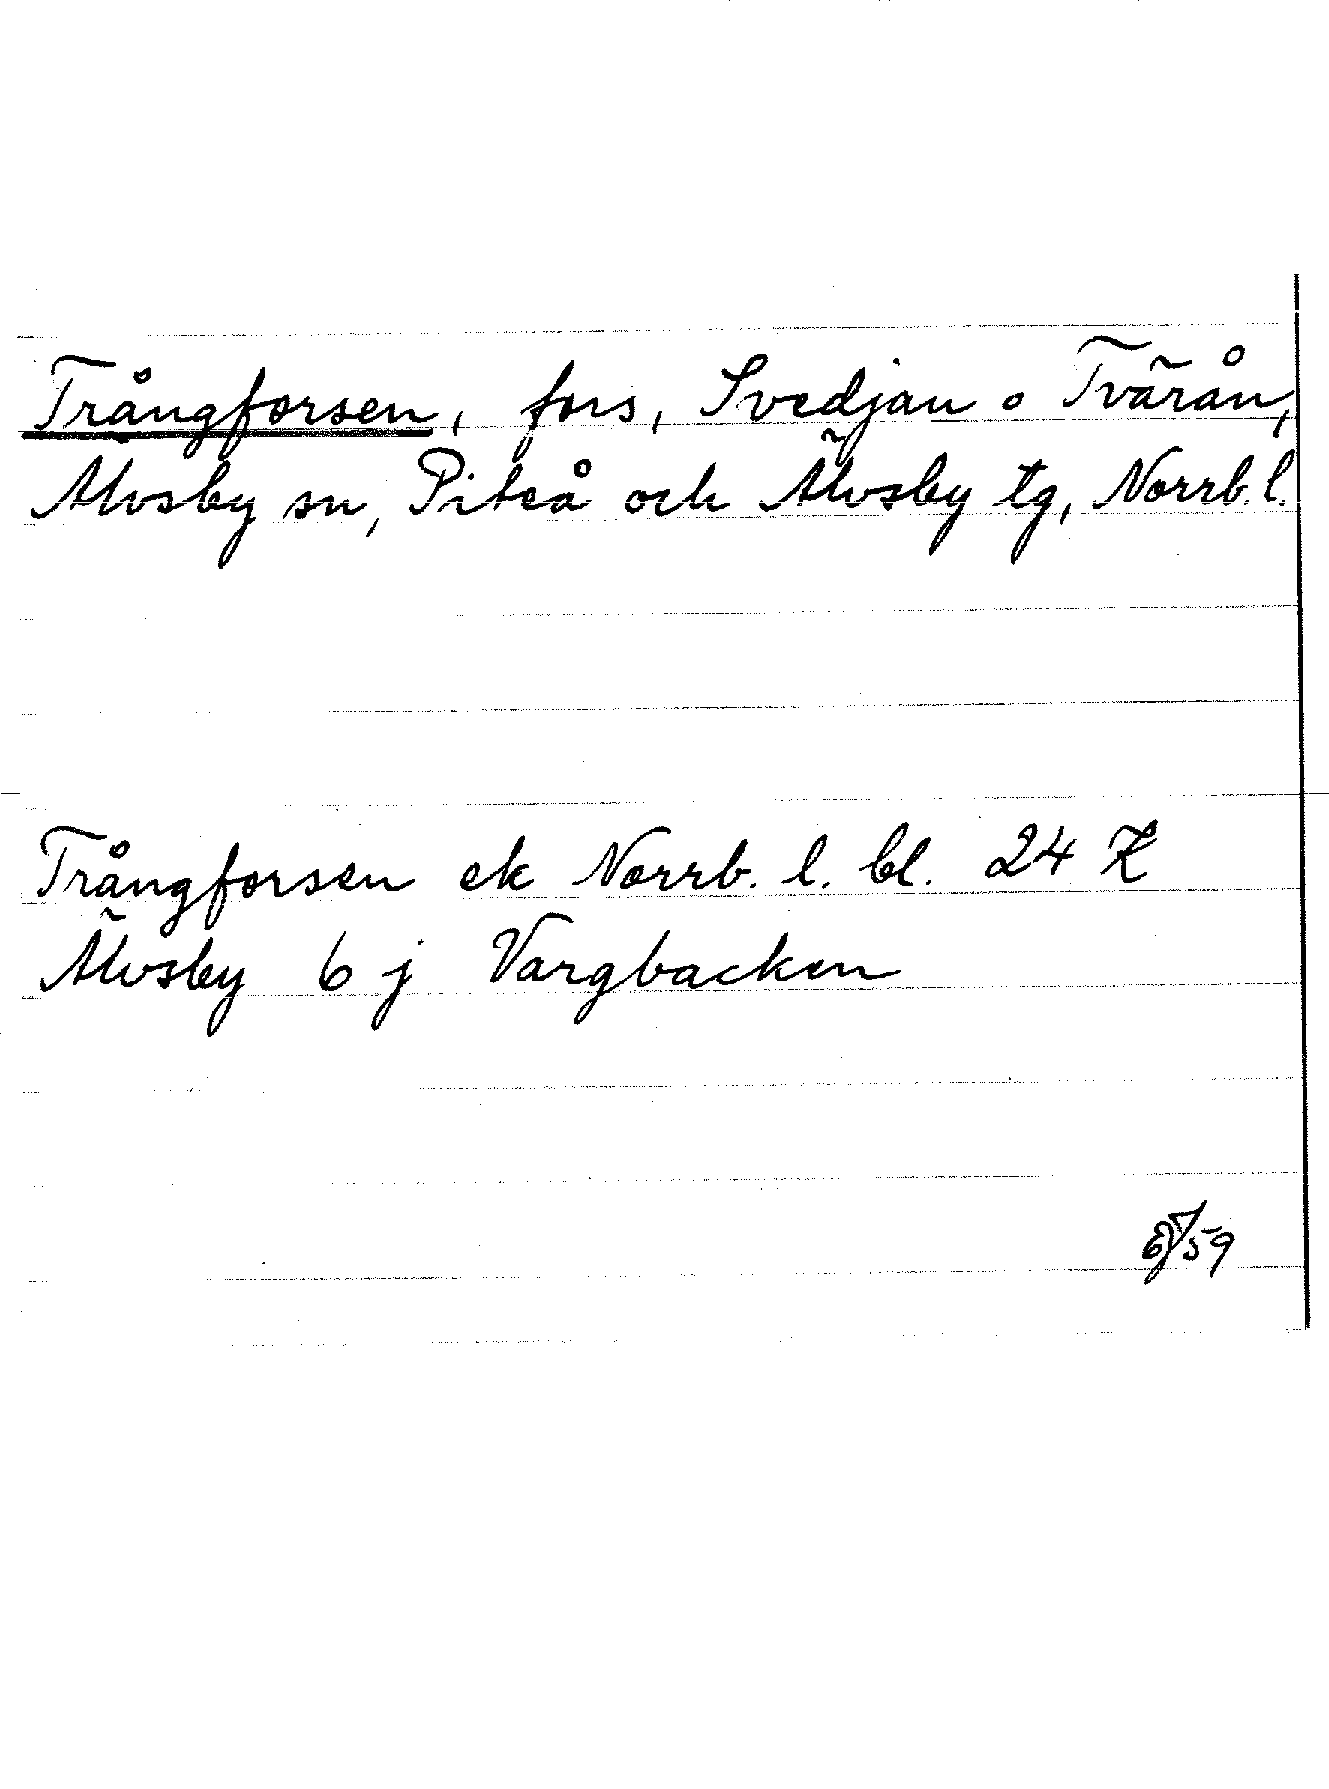 Trångforsen, fors, Svedjan o Tvärån,
Älvsby sn, Piteå och Älvsby tg, Norrb. l.
Trångforsen ek Norrb. l. bl. 24 K
Älvsby 6 j Vargbacken
59